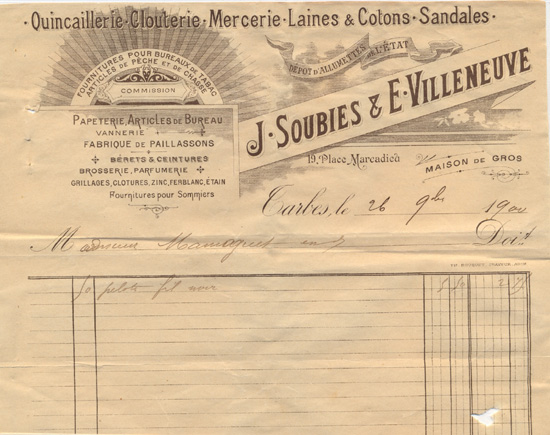 ·Quincaillerie·Clouterie·Mercerie·Laines & Cotons·Sandales·
FOURNITURES POUR BUREAUX DE TABAC
ARTICLES DE PÊCHE ET DE CHASSE
COMMISSION
DÉPÔT D'ALLUMETTES DE L'ÉTAT
J·SOUBIES & E·VILLENEUVE
PAPETERIE, ARTICLES DE BUREAU
VANNERIE
FABRIQUE DE PAILLASSONS
BÉRETS & CEINTURES
BROSSERIE, PARFUMERIE
GRILLAGES, CLOTURES, ZINC, FERBLANC, ÉTAIN
Fournitures pour Sommiers
19, Place Marcadieu
MAISON DE GROS
Tarbes, le 26 9bre 190
Monsieur
Doit
50 pelote fil noir 5 50 2 75